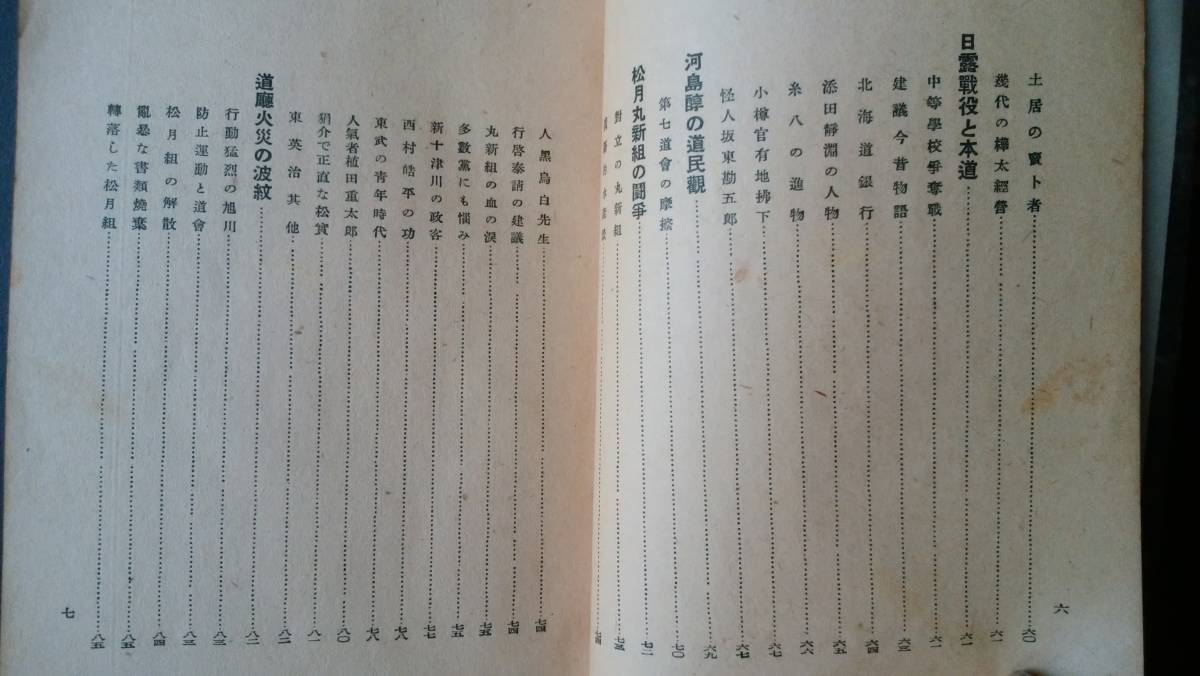 土居の賣卜者…………六〇
幾代の樺太經營…………六一
日露戰役と本道…………六一
中等學校爭奪戰…………六一
建議今昔物語…………六三
北海道銀行…………六四
添田靜淵の人物…………六五
糸八の進物…………六六
小樽官有地拂下…………六七
怪人坂東勘五郎…………六七
河島醇の道民觀…………六九
第七道會の摩擦…………七〇
松月丸新組の鬪爭…………七二
對立の丸新組…………七三
六
人黑鳥白先生…………七四
行啓奉請の建議…………七四
丸新組の血の淚…………七五
多數黨にも惱み…………七五
新十津川の政客…………七七
西村皓平の功…………七八
東武の靑年時代…………七八
人氣者植田重太郎…………八〇
狷介で正直な松實…………八一
東英治其他…………八二
道廳火災の波紋…………八二
行動猛烈の旭川…………八三
防止運動と道會…………八三
松月組の解散…………八四
亂暴な書類燒棄…………八五
轉落した松月組…………八五
七